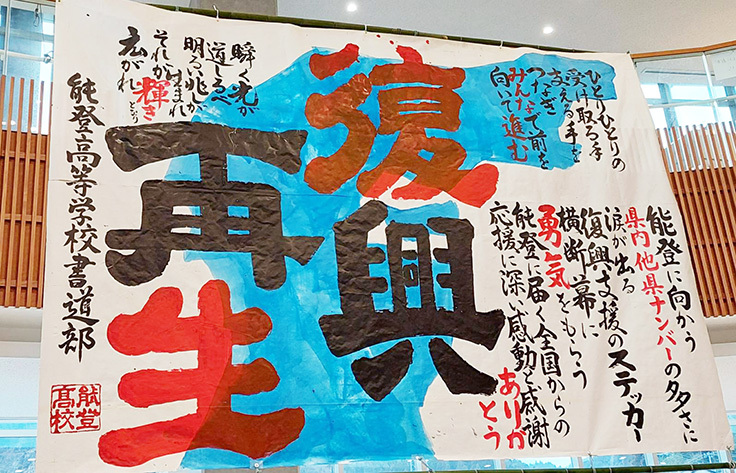 ひとりひとりの
受け取る手
支える手を
つなぎ
みんなで前を
向いて進む
能登に向かう
県内他県ナンバーの多さに
涙が出る
復興支援のステッカー
横断幕に
勇気をもらう
能登に届く全国からの
応援に深い感動と感謝
ありが
とう
復興
再生
瞬く光が
道しるべ
明るい兆が
生まれ
それが輝き
となり
広がれ
能登高等学校書道部
能登
髙校